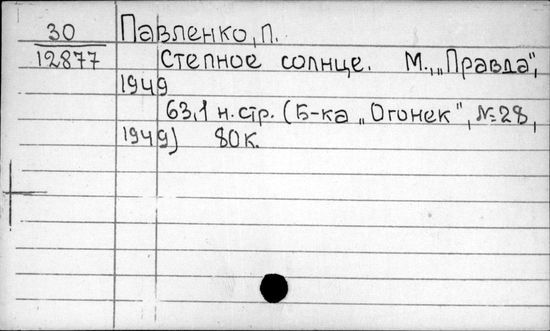 30
12877
Павленко, П.
Степное солнце. М., „Правда",
1949
63,1 н.стр. (Б-ка „Огонек", №28,
1949) 80к.